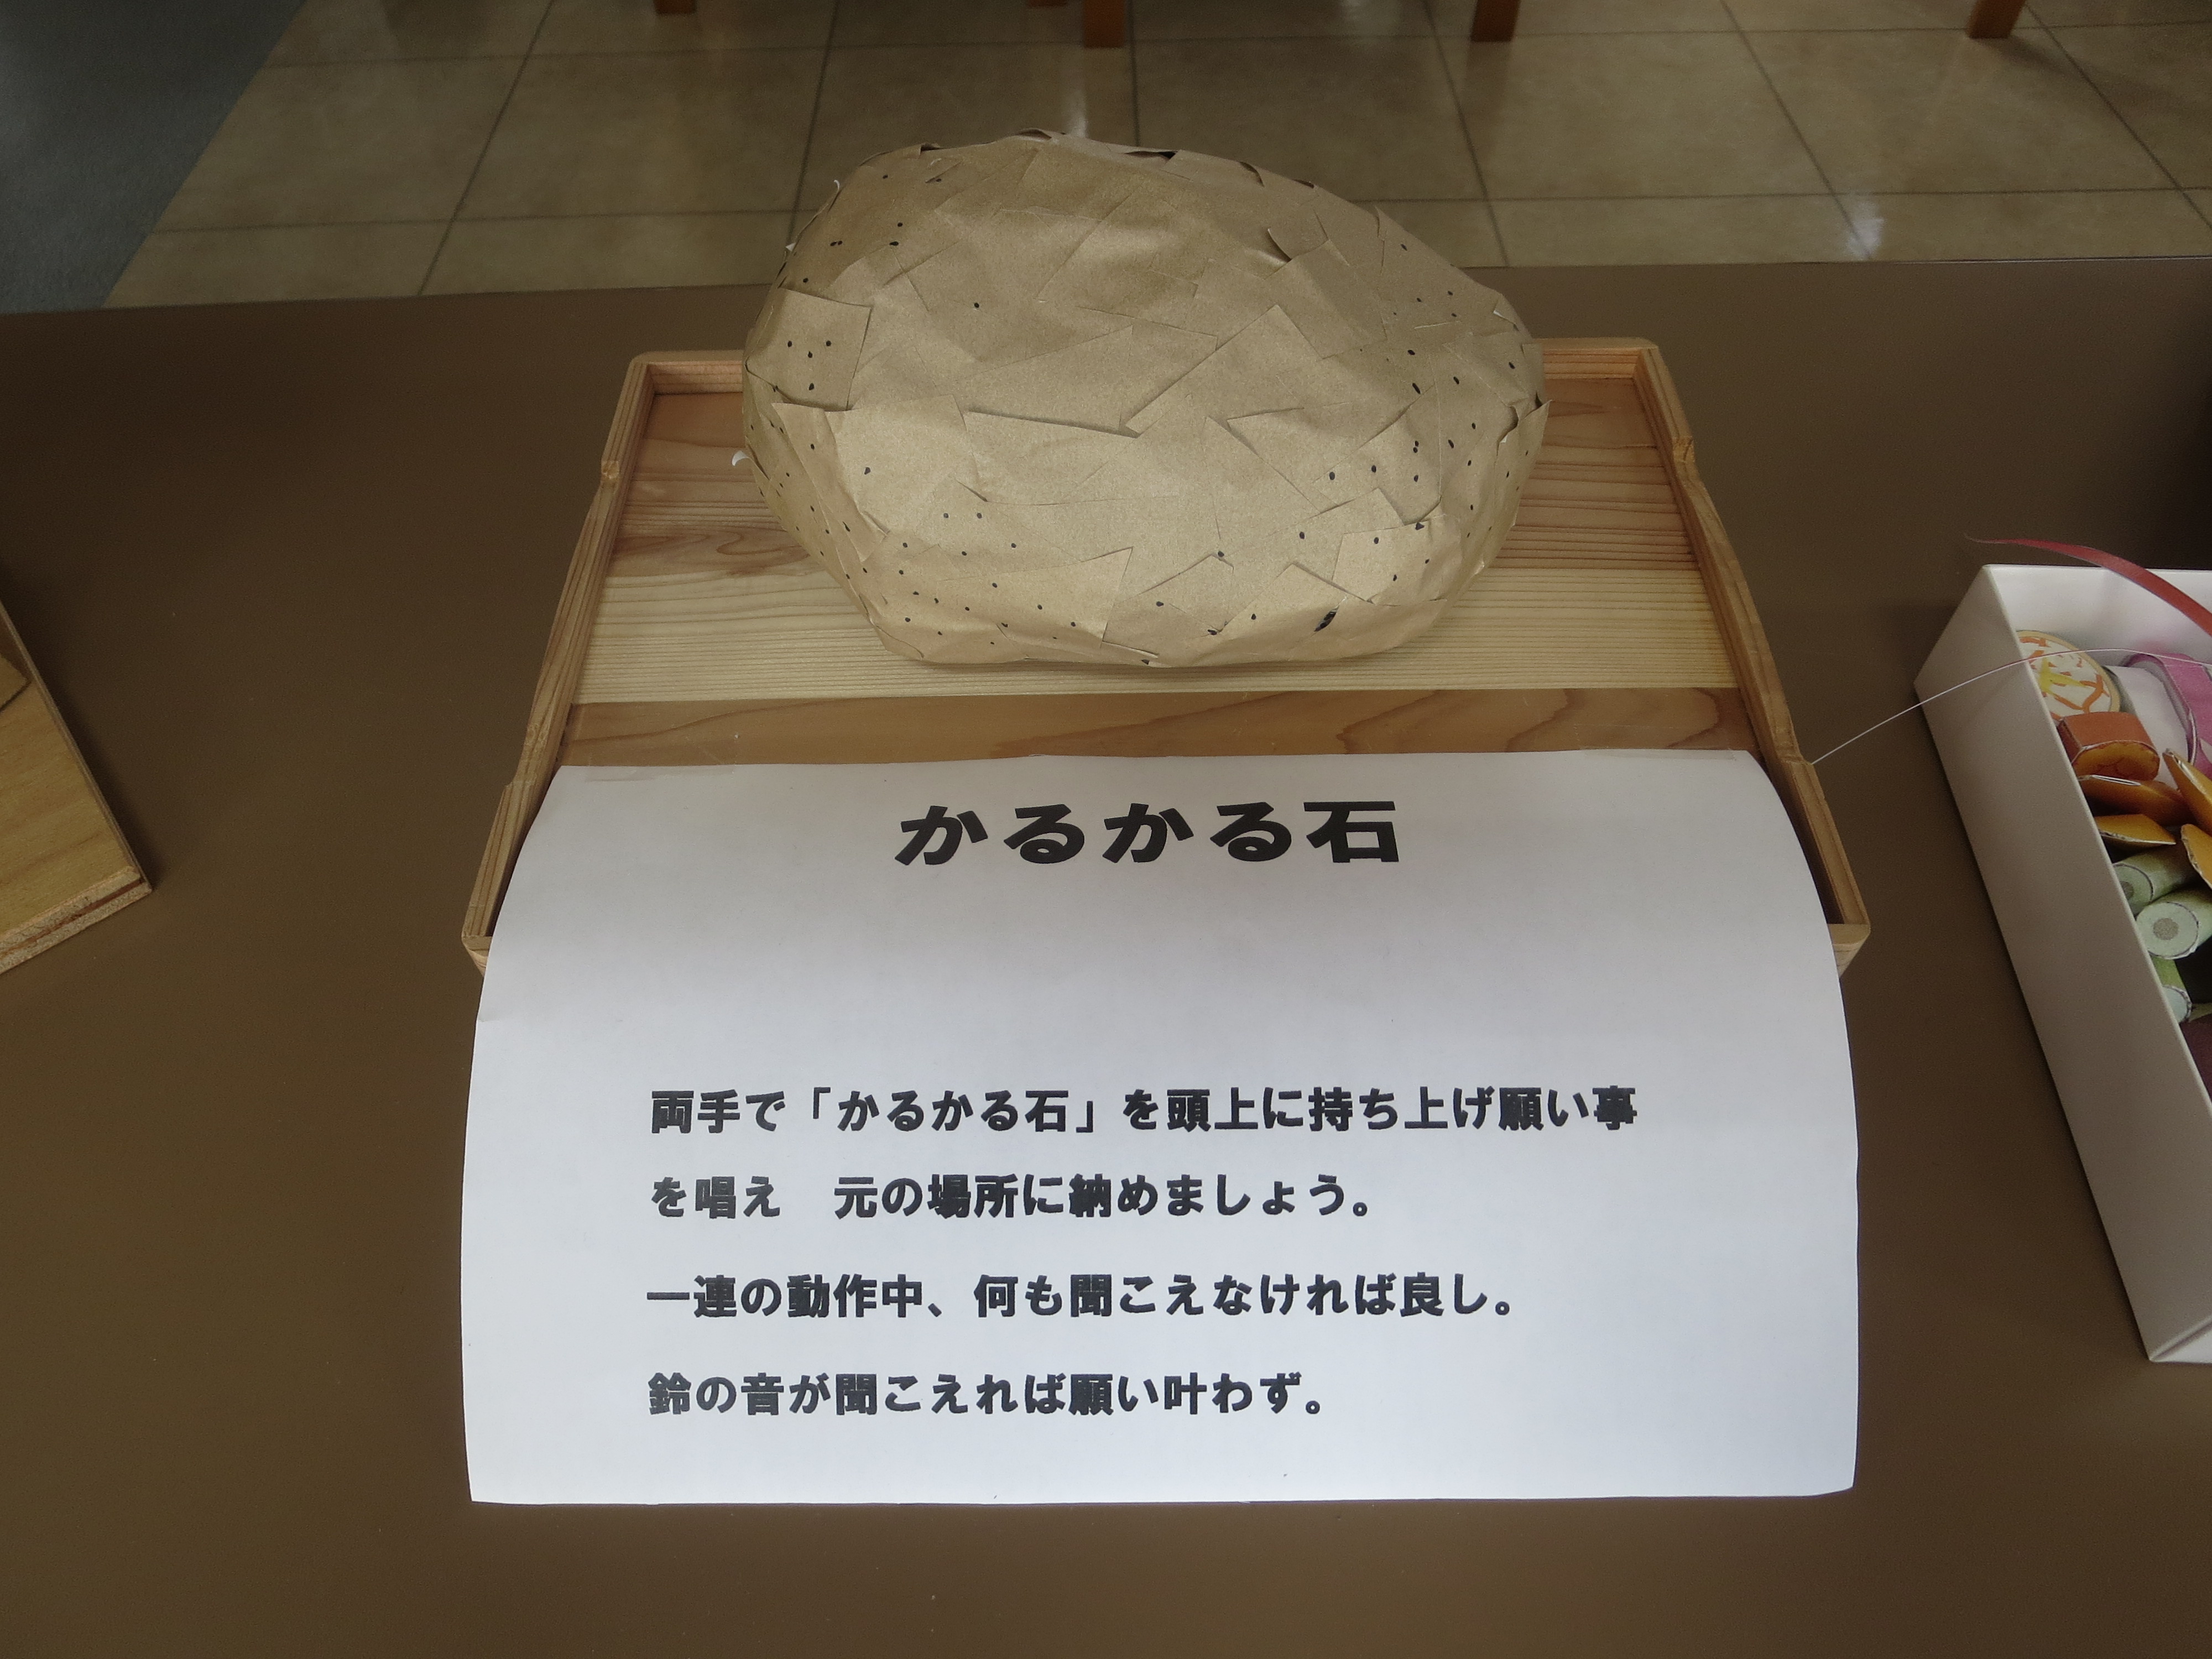 かるかる石
両手で「かるかる石」を頭上に持ち上げ願い事
を唱え　元の場所に納めましょう。
一連の動作中、何も聞こえなければ良し。
鈴の音が聞こえれば願い叶わず。